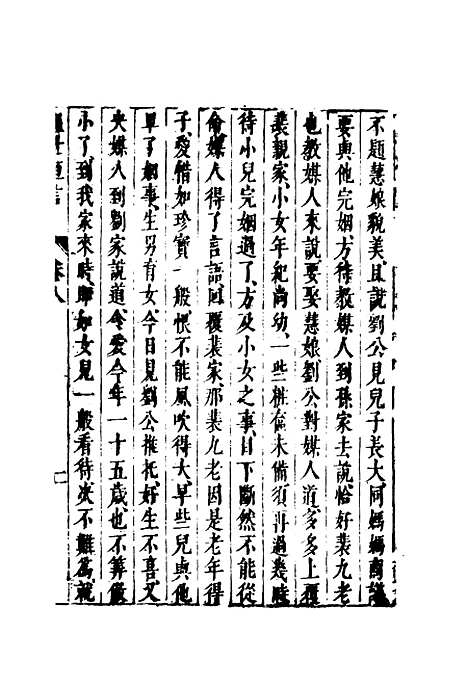 不題慧娘貌美且說劉公見兒子長大同媽媽商議
要與他完姻方待教媒人到孫家去說恰好裴九老
也教媒人來說要娶慧娘劉公對媒人道多多上覆
裴親家小女年紀尚幼一些粧奩未備須再過幾時
待小兒完姻過了方及小女之事目下斷然不能從
命媒人得了言語回覆裴家那裴九老因是老年得
子愛惜如珍寶一般恨不能風吹得大早些兒與他
畢了姻事生男育女今日見劉公推托好生不喜又
央媒人到劉家說道令愛今年一十五歲也不算做
小了到我家來時即如女兒一般看待決不難為就
卷八
二